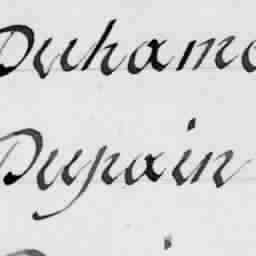 Duhame
Dupain